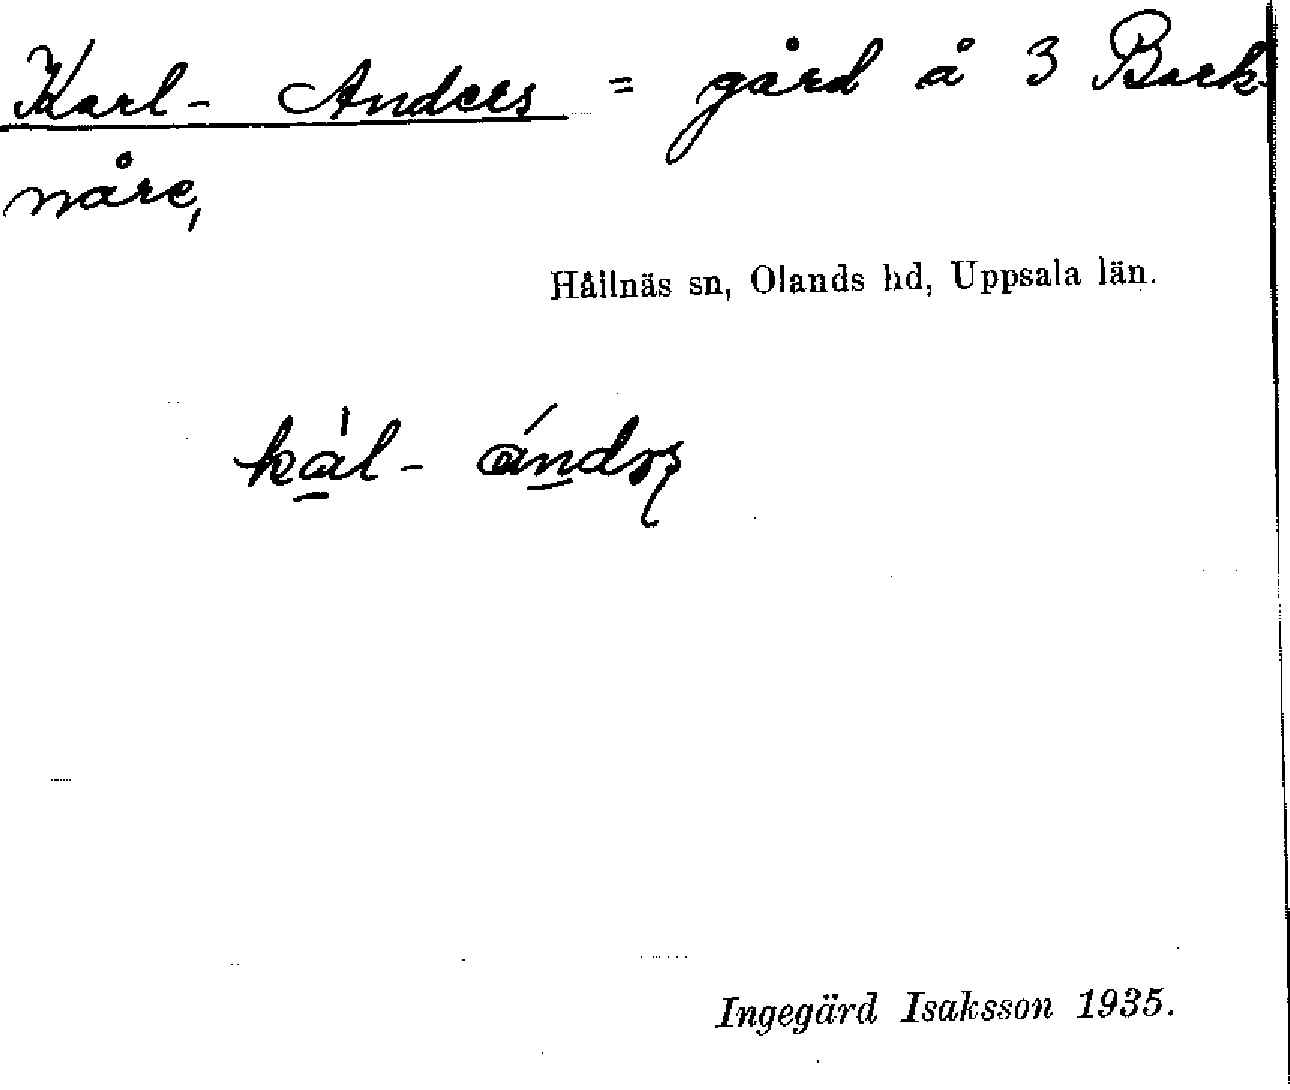 Karl- Anders = gård å 3 Bark-
nåre,
Hållnäs sn, Olands hd, Uppsala län.
kàl- ándrs
Ingegärd Isaksson 1935.